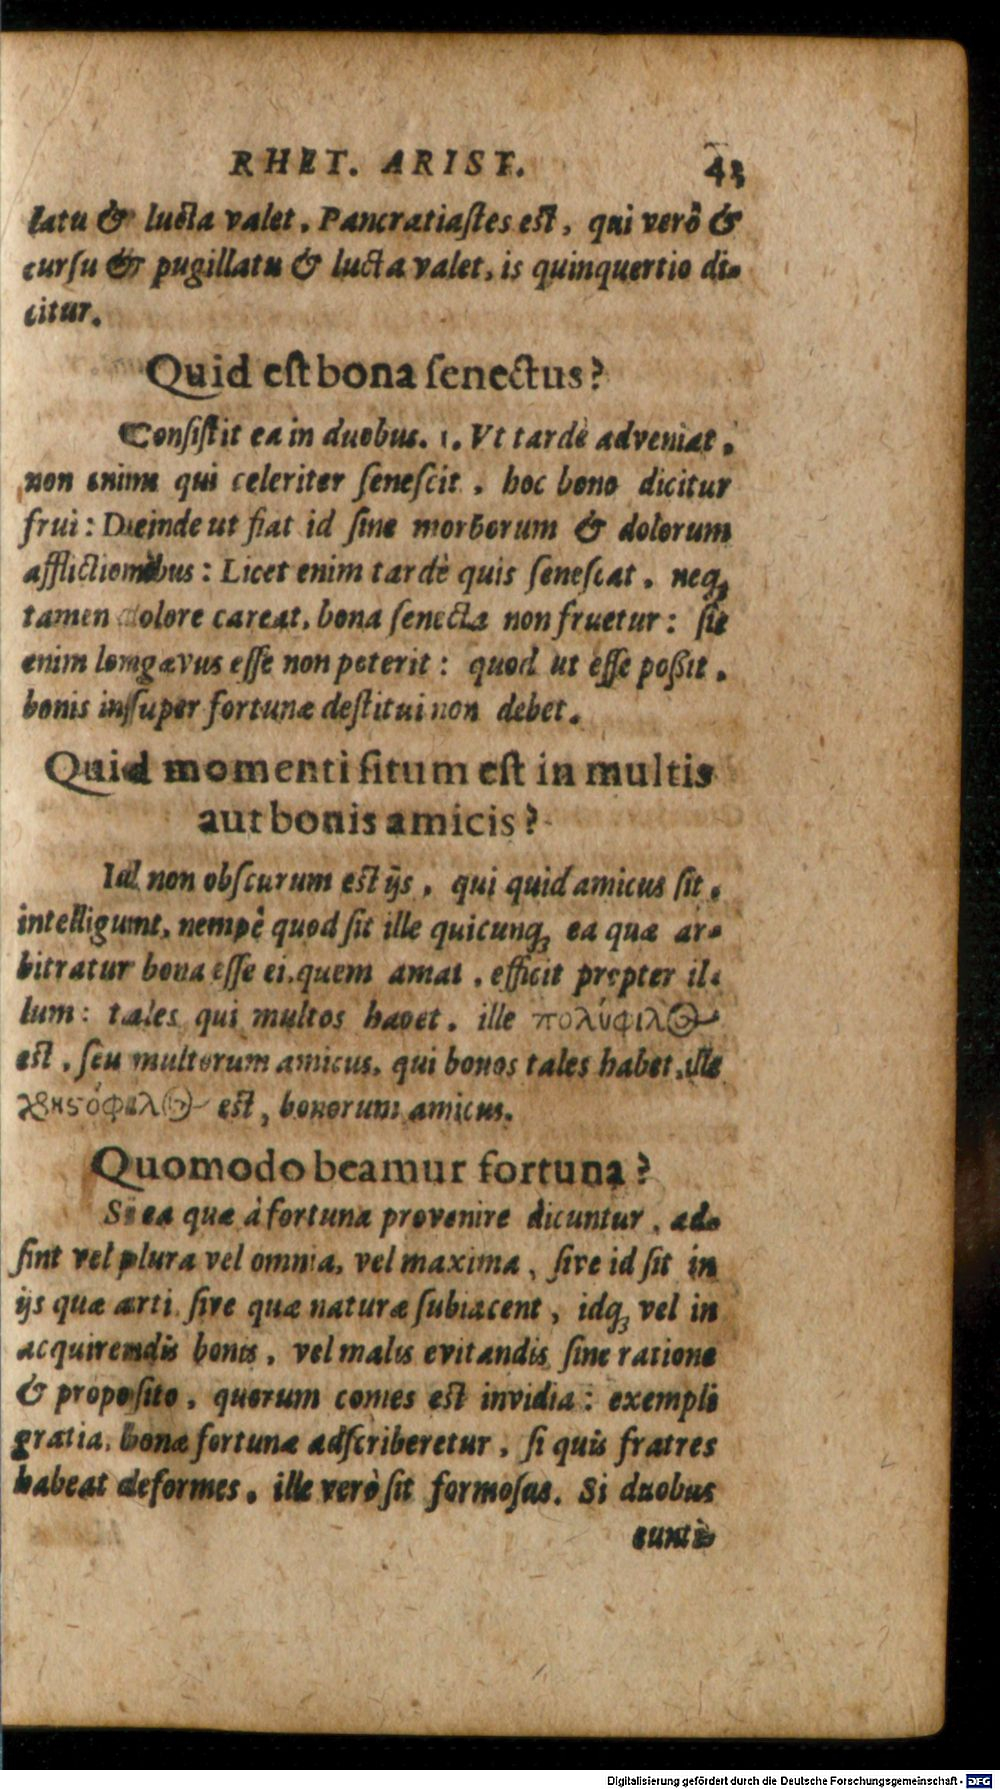 RHET. ARIST. 43
latu & lucta valet, Pancratiastes est, qui verò &
cursu & pugillatu & lucta valet, is quinquertio di-
citur.
Quid est bona senectus?
Consistit ea in duobus. 1. Ut tardè adveniat,
non enim qui celeriter senescit, hoc bono dicitur
frui: Deinde ut fiat id sine morborum & dolorum
afflictionibus: Licet enim tardè quis senescat, neq;
tamen dolore careat, bona senecta non fruetur: sic
enim longævus esse non poterit: quod ut esse poßit,
bonis insuper fortunæ destitui non debet.
Quid momenti situm est in multis
aut bonis amicis?
Id non obscurum est ijs, qui quid amicus sit,
intelligunt, nempè quod sit ille quicunq; ea quæ ar-
bitratur bona esse ei, quem amat, efficit propter il-
lum: tales qui multos habet, ille πολύφιλος
est, seu multorum amicus, qui bonos tales habet, ille
χρηστόφιλος est, bonorum amicus.
Quomodo beamur fortuna?
Si ea quæ à fortuna provenire dicuntur, ad-
sint vel plura vel omnia, vel maxima, sive id sit in
ijs quæ arti, sive quæ naturæ subiacent, idq; vel in
acquirendis bonis, vel malis evitandis sine ratione
& proposito, quorum comes est invidia: exempli
gratia, bonæ fortunæ adscriberetur, si quis fratres
habeat deformes, ille verò sit formosus. Si duobus
eunti-
Digitalisierung gefördert durch die Deutsche Forschungsgemeinschaft - DFG